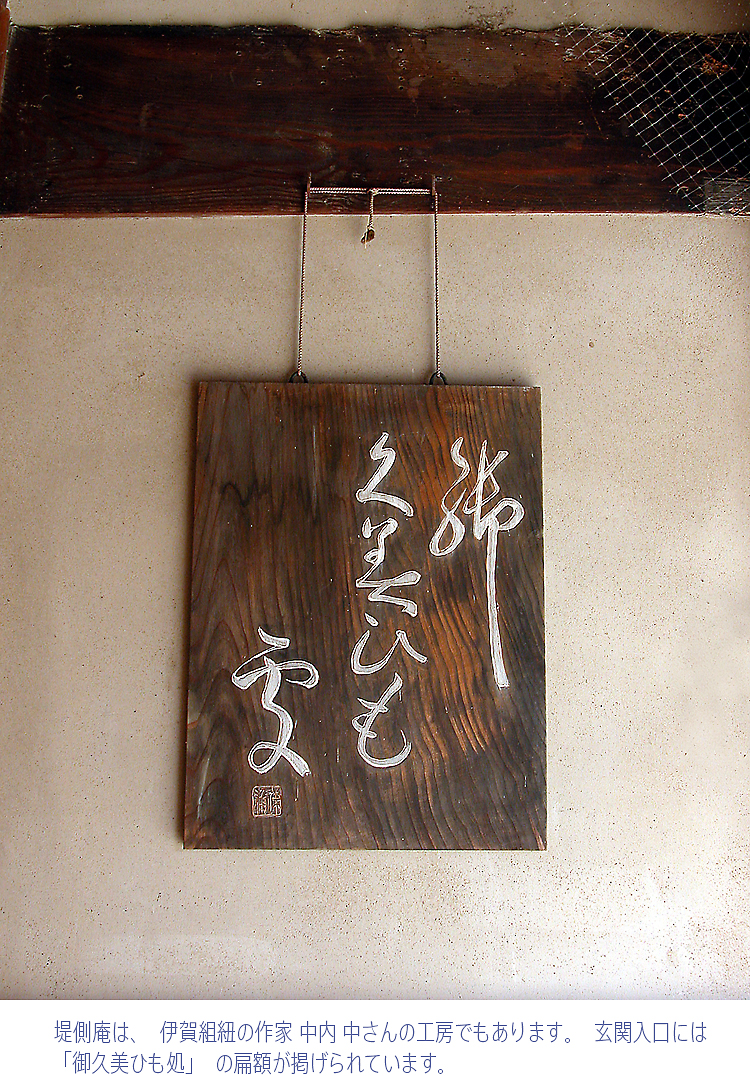 御
久美ひも
処
堤側庵は、 伊賀組紐の作家 中内 中さんの工房でもあります。 玄関入口には
「御久美ひも処」 の扁額が掲げられています。